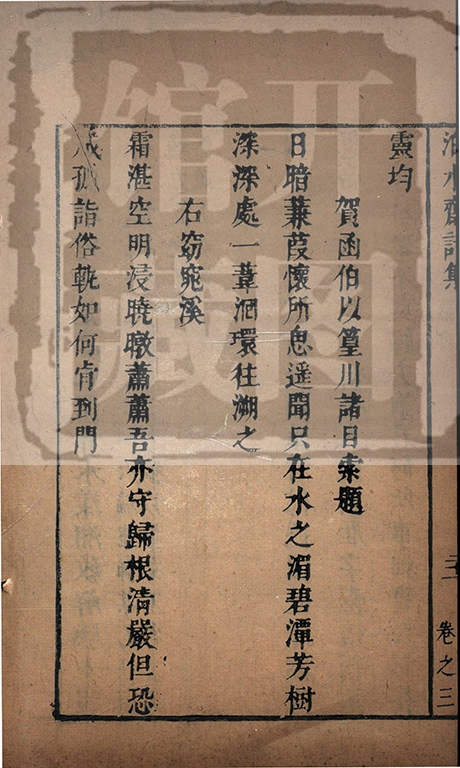 泊水齋詩集
卷之三
靈均
賀函伯以篁川諸目索題
日暗蒹葭懷所思遥聞只在水之湄碧潭芳樹
深深處一葦洄環往溯之
右窈窕溪
霜湛空明浸曉暾蕭蕭吾亦守歸根清嚴但恐
成孤詣俗軌如何肯到門